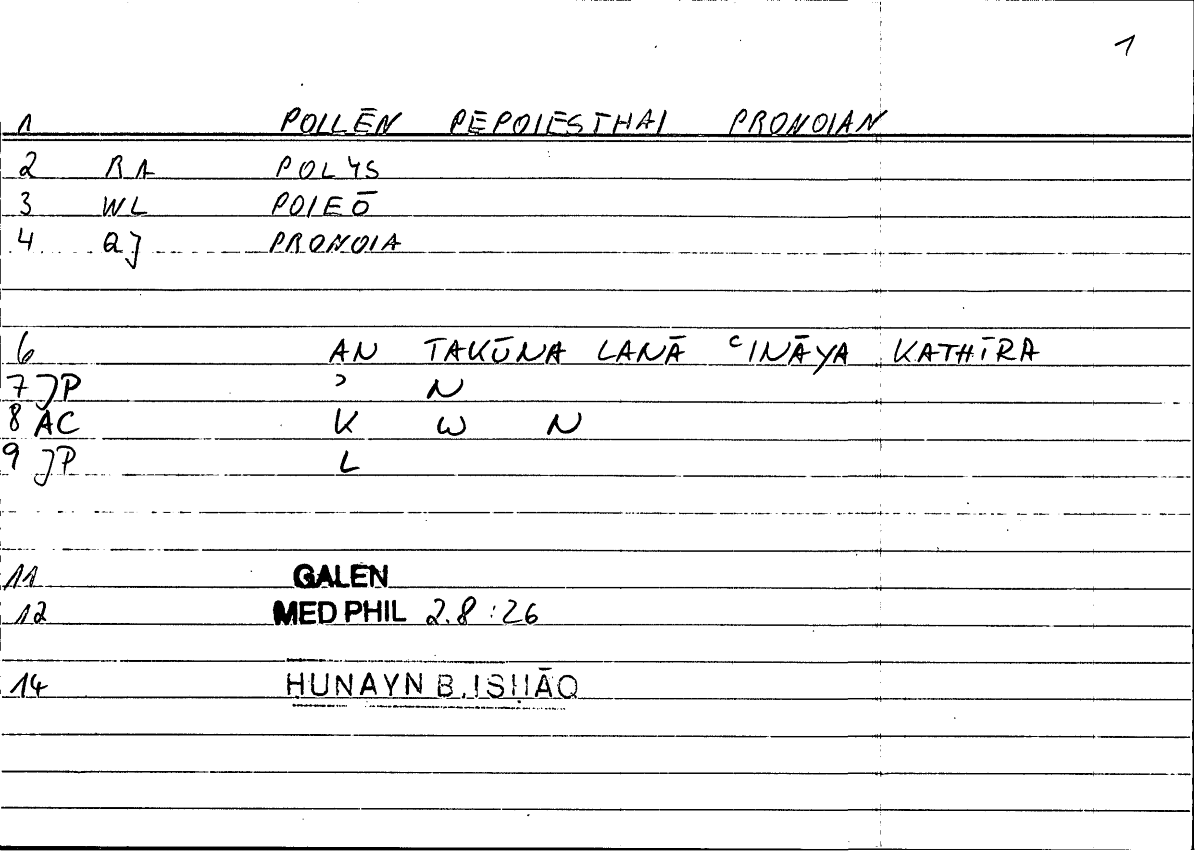 1
1 POLLĒN PEPOIESTHAI PRONOIAN
2 RA POLYS
3 WL POIEŌ
4 QJ PRONOIA
6 AN TAKŪNA LANĀ ʿINĀYA KATHĪRA
7 JP ʾ N
8 AC K W N
9 JP L
11 GALEN
12 MED PHIL 2.8:26
14 HUNAYN B. ISḤĀQ